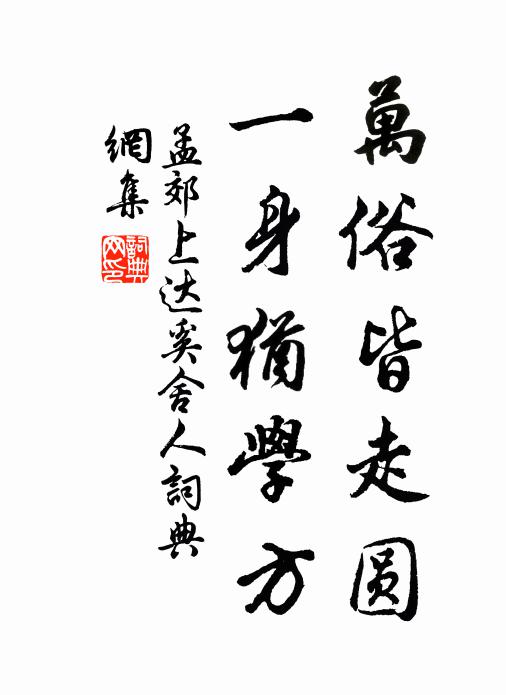 萬俗皆走圆
一身猶學方
孟郊上达奚舍人詞典
網集
詞典網印